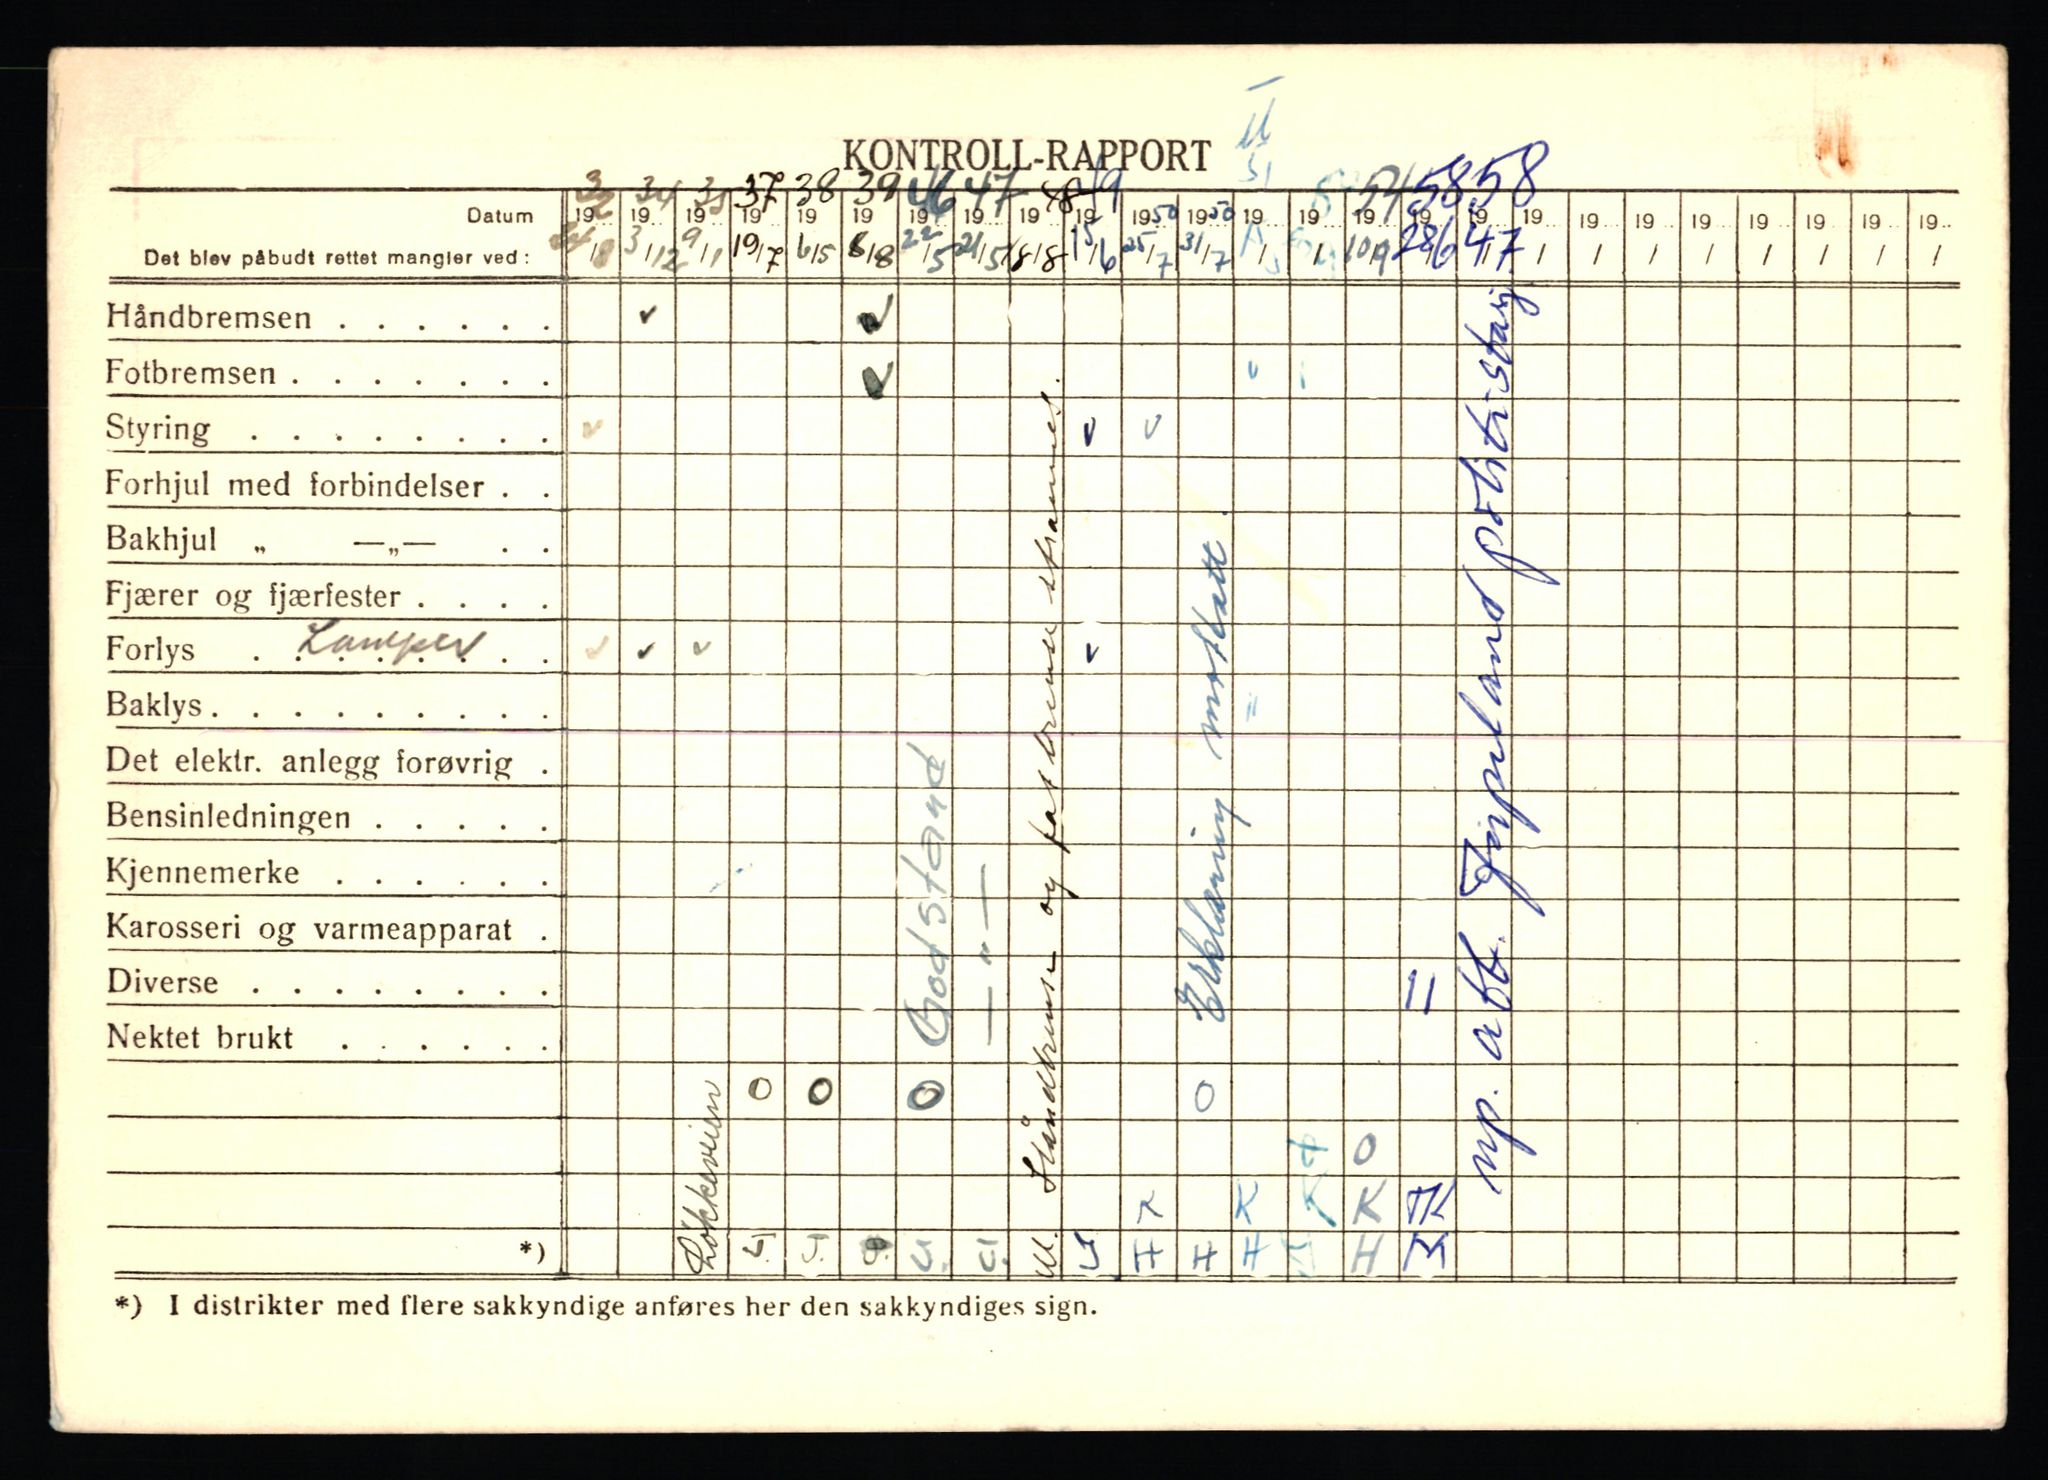 KONTROLL-RAPPORT
32 34 35 37 38 39 46 47 48 49 51 54 58 58
Datum 19 19 19 19 19 19 19 19 19 19 1950 1950 19 19 19 19 19 19 19 19 19 19 19 19 19
Det blev påbudt rettet mangler ved: 3/12 9/11 19/7 6/5 8/8 22/5 21/5 18/8 15/6 25/7 31/7 / / 10/9 28/6 4/7 / / / / / / / /
Håndbremsen . . . . . . ✓ ✓
Fotbremsen . . . . . . . ✓ ✓
Styring . . . . . . . . . ✓ ✓ ✓
Forhjul med forbindelser . .
Bakhjul „ —„— . .
Fjærer og fjærfester . . . .
Forlys . Lamper . . ✓ ✓ ✓ ✓
Baklys . . . . . . . . . "
Det elektr. anlegg forøvrig .
Bensinledningen . . . . .
Kjennemerke . . . . . .
Karosseri og varmeapparat .
Diverse . . . . . . . . . 11
Nektet brukt . . . . . .
O O O O
O
K K K K TK
*) J. J. J. J. J. H H H H K
Løkkevien
God stand
— „ —
M. Håndbremse og fotbremse strammes.
Erklæring mottatt.
mp. att. Fingeland politi-stavg
*) I distrikter med flere sakkyndige anføres her den sakkyndiges sign.